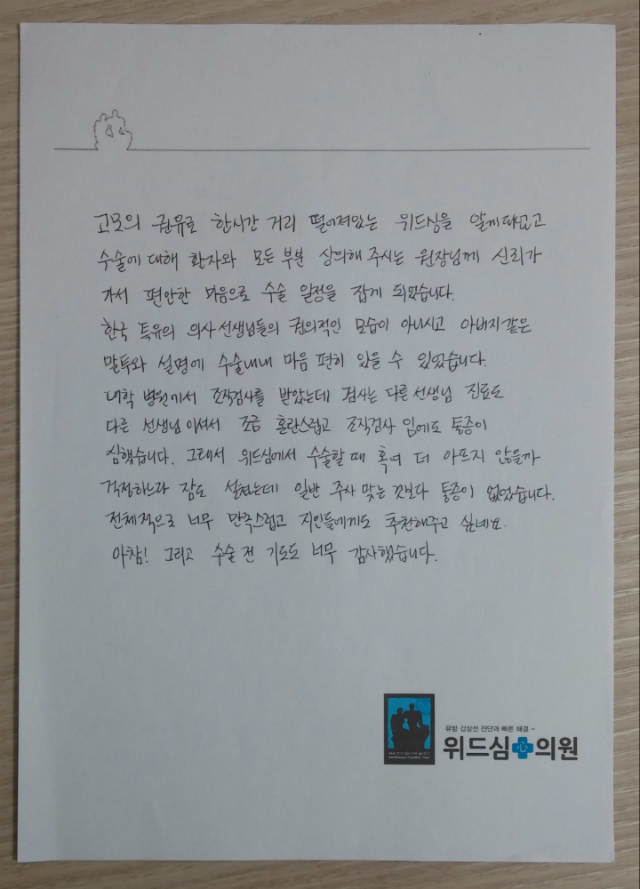 고모의 권유로 한시간 거리 떨어져있는 위드심을 알게되었고
수술에 대해 환자와 모든 부분 상의해 주시는 원장님께 신뢰가
가서 편안한 마음으로 수술 일정을 잡게 되었습니다.
한국 특유의 의사선생님들의 권의적인 모습이 아니시고 아버지같은
말투와 설명에 수술내내 마음 편히 있을 수 있었습니다.
대학 병원에서 조직검사를 받았는데 검사는 다른선생님 진료도
다른 선생님이셔서 조금 혼란스럽고 조직검사 임에도 통증이
심했습니다. 그래서 위드심에서 수술할 때 혹여 더 아프지 않을까
걱정하느라 잠도 설쳤는데 일반 주사 맞는 것보다 통증이 없었습니다.
전체적으로 너무 만족스럽고 지인들에게도 추천해주고 싶네요.
아참! 그리고 수술 전 기도도 너무 감사했습니다.
유방 갑상선 진단과 빠른 해결 –
위드심心의원